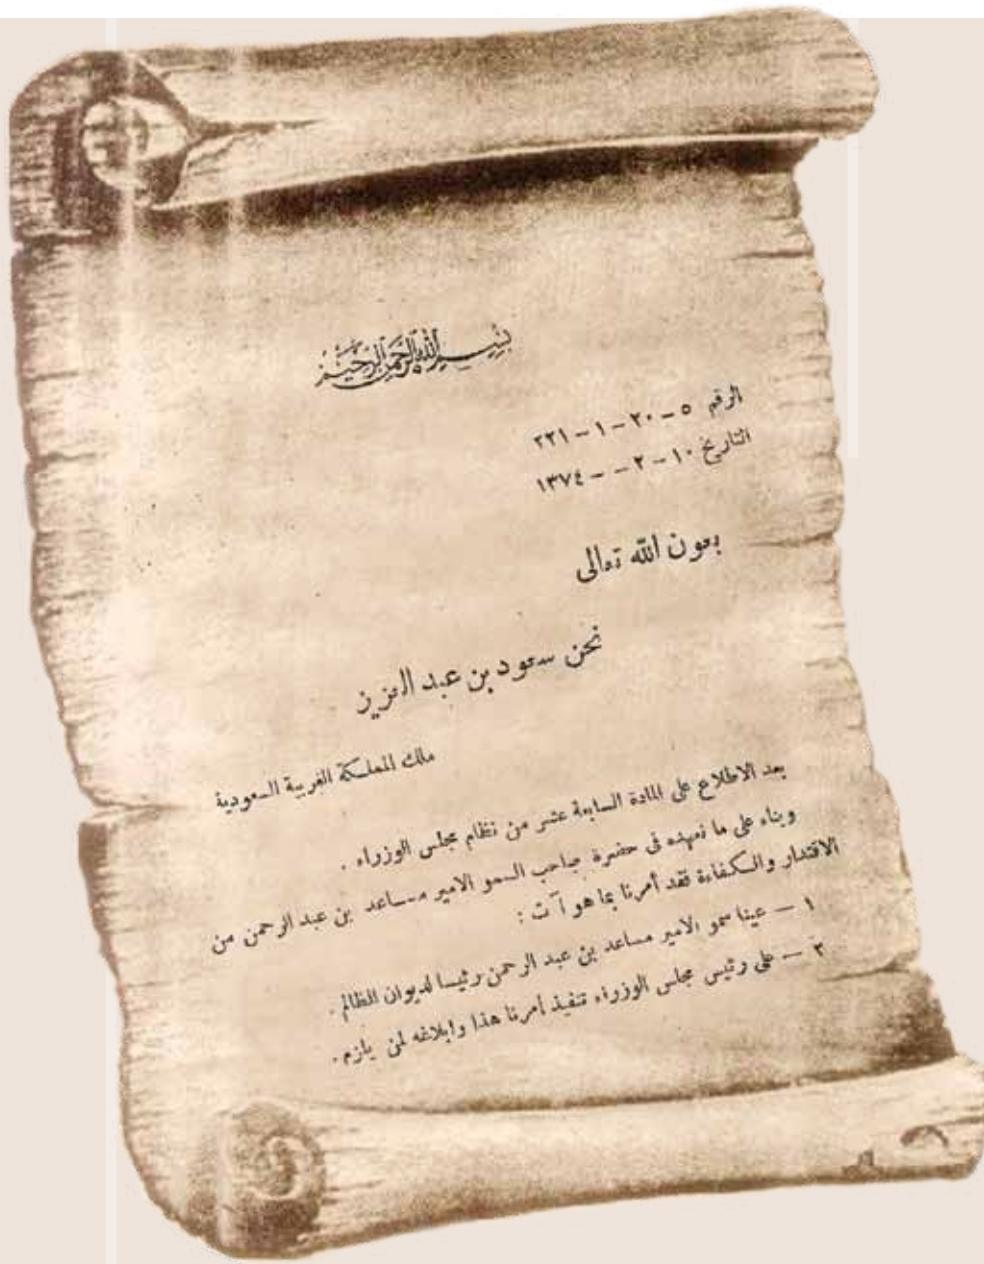 بسم الله الرحمن الرحيم
الرقم ٥ – ٢٠ – ١ – ٢٢١
التاريخ ١٠ – ٢ – – ١٣٧٤
بعون الله تعالى
نحن سعود بن عبد العزيز
ملك المملكة العربية السعودية
بعد الاطلاع على المادة السابعة عشر من نظام مجلس الوزراء .
وبناء على ما نعهده في حضرة صاحب السمو الامير مساعد بن عبد الرحمن من
الاقتدار والكفاءة فقد أمرنا بما هو آت :
١ – عينا سمو الامير مساعد بن عبد الرحمن رئيسا لديوان المظالم .
٢ – على رئيس مجلس الوزراء تنفيذ أمرنا هذا وابلاغه لمن يلزم .